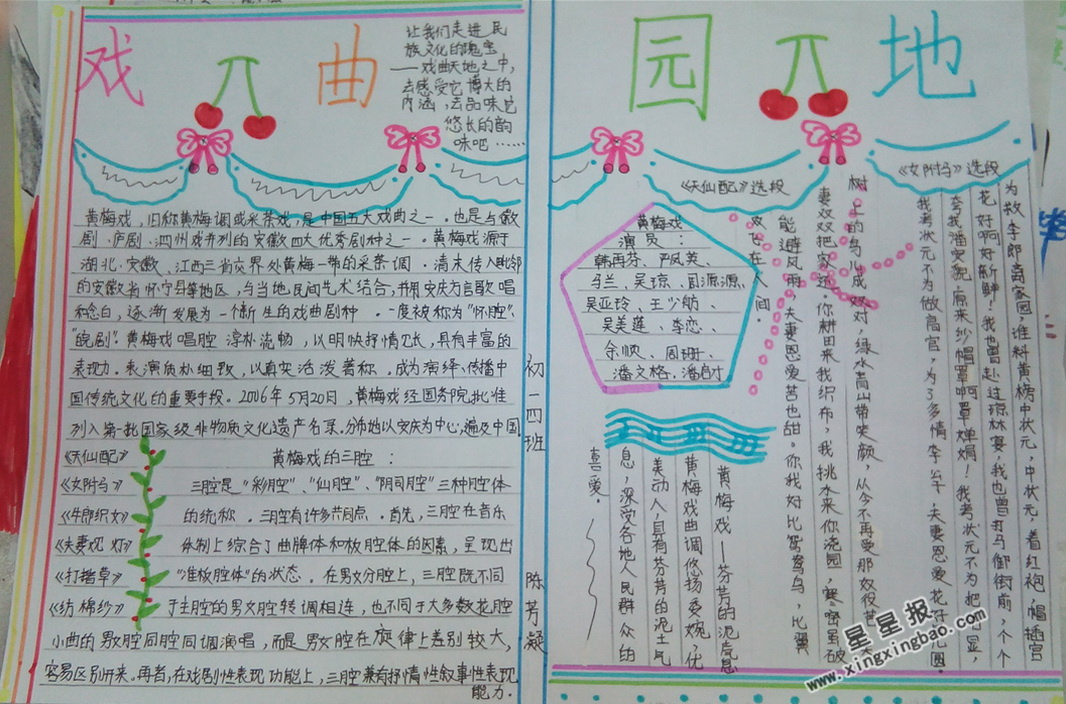 戏曲
园地
让我们走进民
族文化的瑰宝
——戏曲天地之中,
去感受它博大的
内涵,去品味它
悠长的韵
味吧……
黄梅戏,旧称黄梅调或采茶戏,是中国五大戏曲之一。也是与徽
剧、庐剧、泗州戏并列的安徽四大优秀剧种之一。黄梅戏源于
湖北、安徽、江西三省交界处黄梅一带的采茶调。清末传入毗邻
的安徽省怀宁县等地区,与当地民间艺术结合,并用安庆方言歌唱
和念白,逐渐发展为一个新生的戏曲剧种。一度被称为“怀腔”、
“皖剧”。黄梅戏唱腔淳朴流畅,以明快抒情见长,具有丰富的
表现力。表演质朴细致,以真实活泼著称。成为演绎、传播中
国传统文化的重要手段。2006年5月20日,黄梅戏经国务院批准
列入第一批国家级非物质文化遗产名录。分布地以安庆为中心,遍及中国
《天仙配》
《女附马》
《牛郎织女》
《夫妻观灯》
《打猪草》
《纺棉纱》
黄梅戏的三腔:
三腔是“彩腔”、“仙腔”、“阴司腔”三种腔体
的统称。三腔有许多共同点。首先,三腔在音乐
体制上综合了曲牌体和板腔体的因素,呈现出
“准板腔体”的状态。在男女分腔上,三腔既不同
于主腔的男女腔转调相连,也不同于大多数花腔
小曲的男女腔同腔同调演唱,而是男女腔在旋律上差别较大,
容易区别开来。再者,在戏剧性表现功能上,三腔兼有抒情性叙事性表现
能力。
初一四班 陈芳凝
《女附马》选段
为救李郎离家园,谁料黄榜中状元,中状元,着红袍,帽插宫
花好啊好新鲜!我也曾赴过琼林宴,我也曾打马御街前,个个
夸我潘安貌,原来纱帽罩啊罩婵娟!我考状元不为把
显,
我考状元不为做高官,为了多情李公子,夫妻恩爱花好
圆
《天仙配》选段
树上的鸟儿成双对,绿水青山带笑颜,从今不再受那奴役苦
妻双双把家还。你耕田来我织布,我挑水来你浇园,寒窑虽破
能避风雨,夫妻恩爱苦也甜。你我好比鸳鸯鸟,比翼
双飞在人间。
黄梅戏
演员:
韩再芬、严凤英、
马兰、吴琼、周源源、
吴亚玲、王少舫、
吴美莲、李恋、
余顺、周珊、
潘文格、潘启才
黄梅戏——芬芳的泥土气息
黄梅戏曲调悠扬委婉,优
美动人,具有芬芳的泥土气
息,深受各地人民群众的
喜爱。
星星报
www.xingxingbao.com